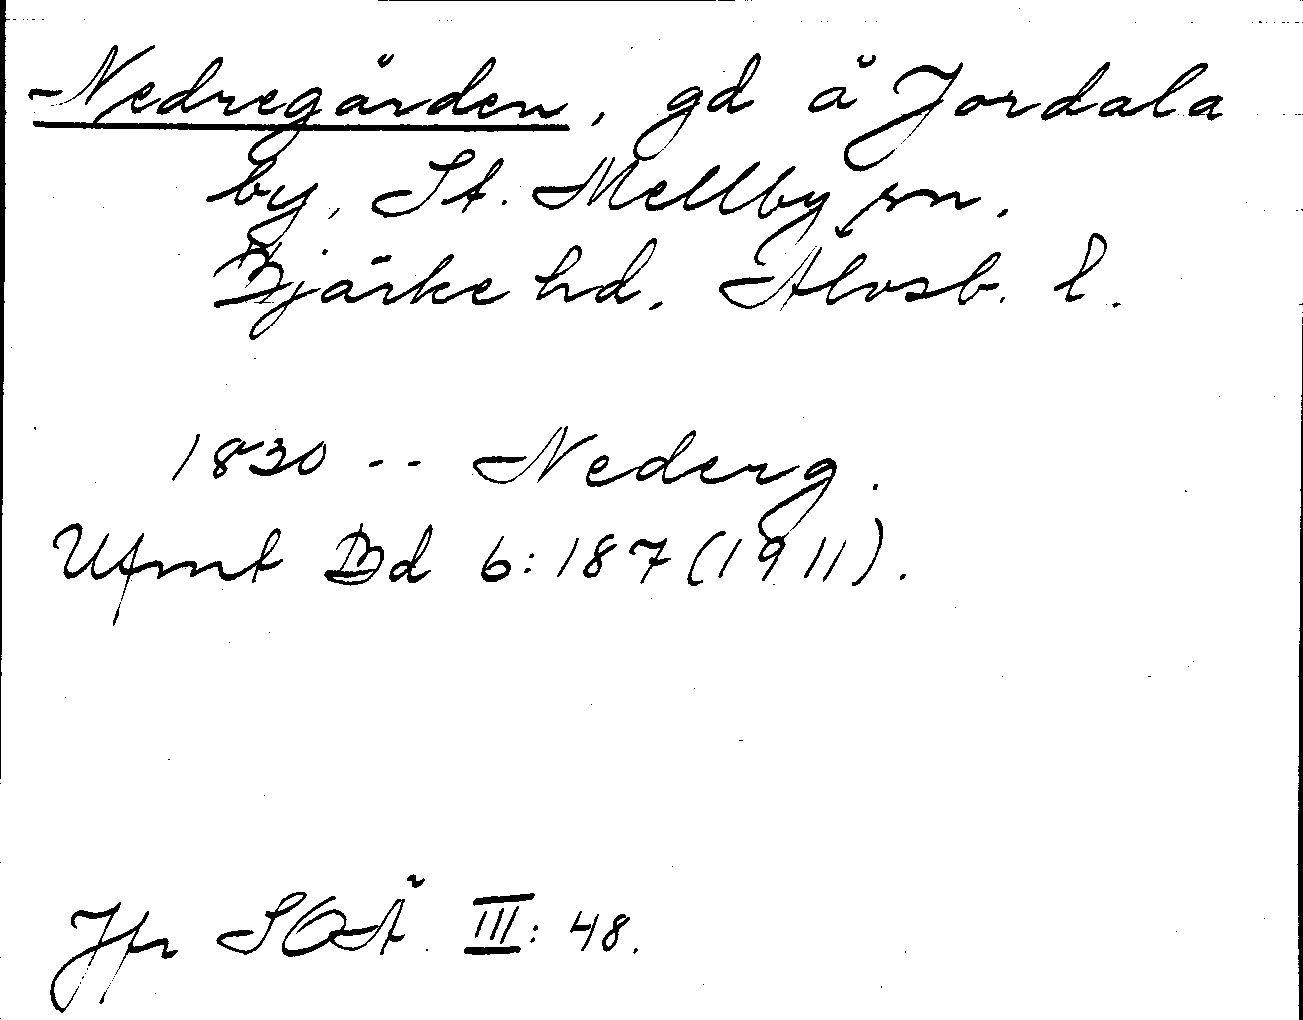 Nedregården, gd å Jordala
by, St. Mellby sn,
Bjärke hd, Älvsb. l.
1830 -- Nederg.
Ufmt Bd 6:187 (1911).
Jfr SOÄ III: 48.